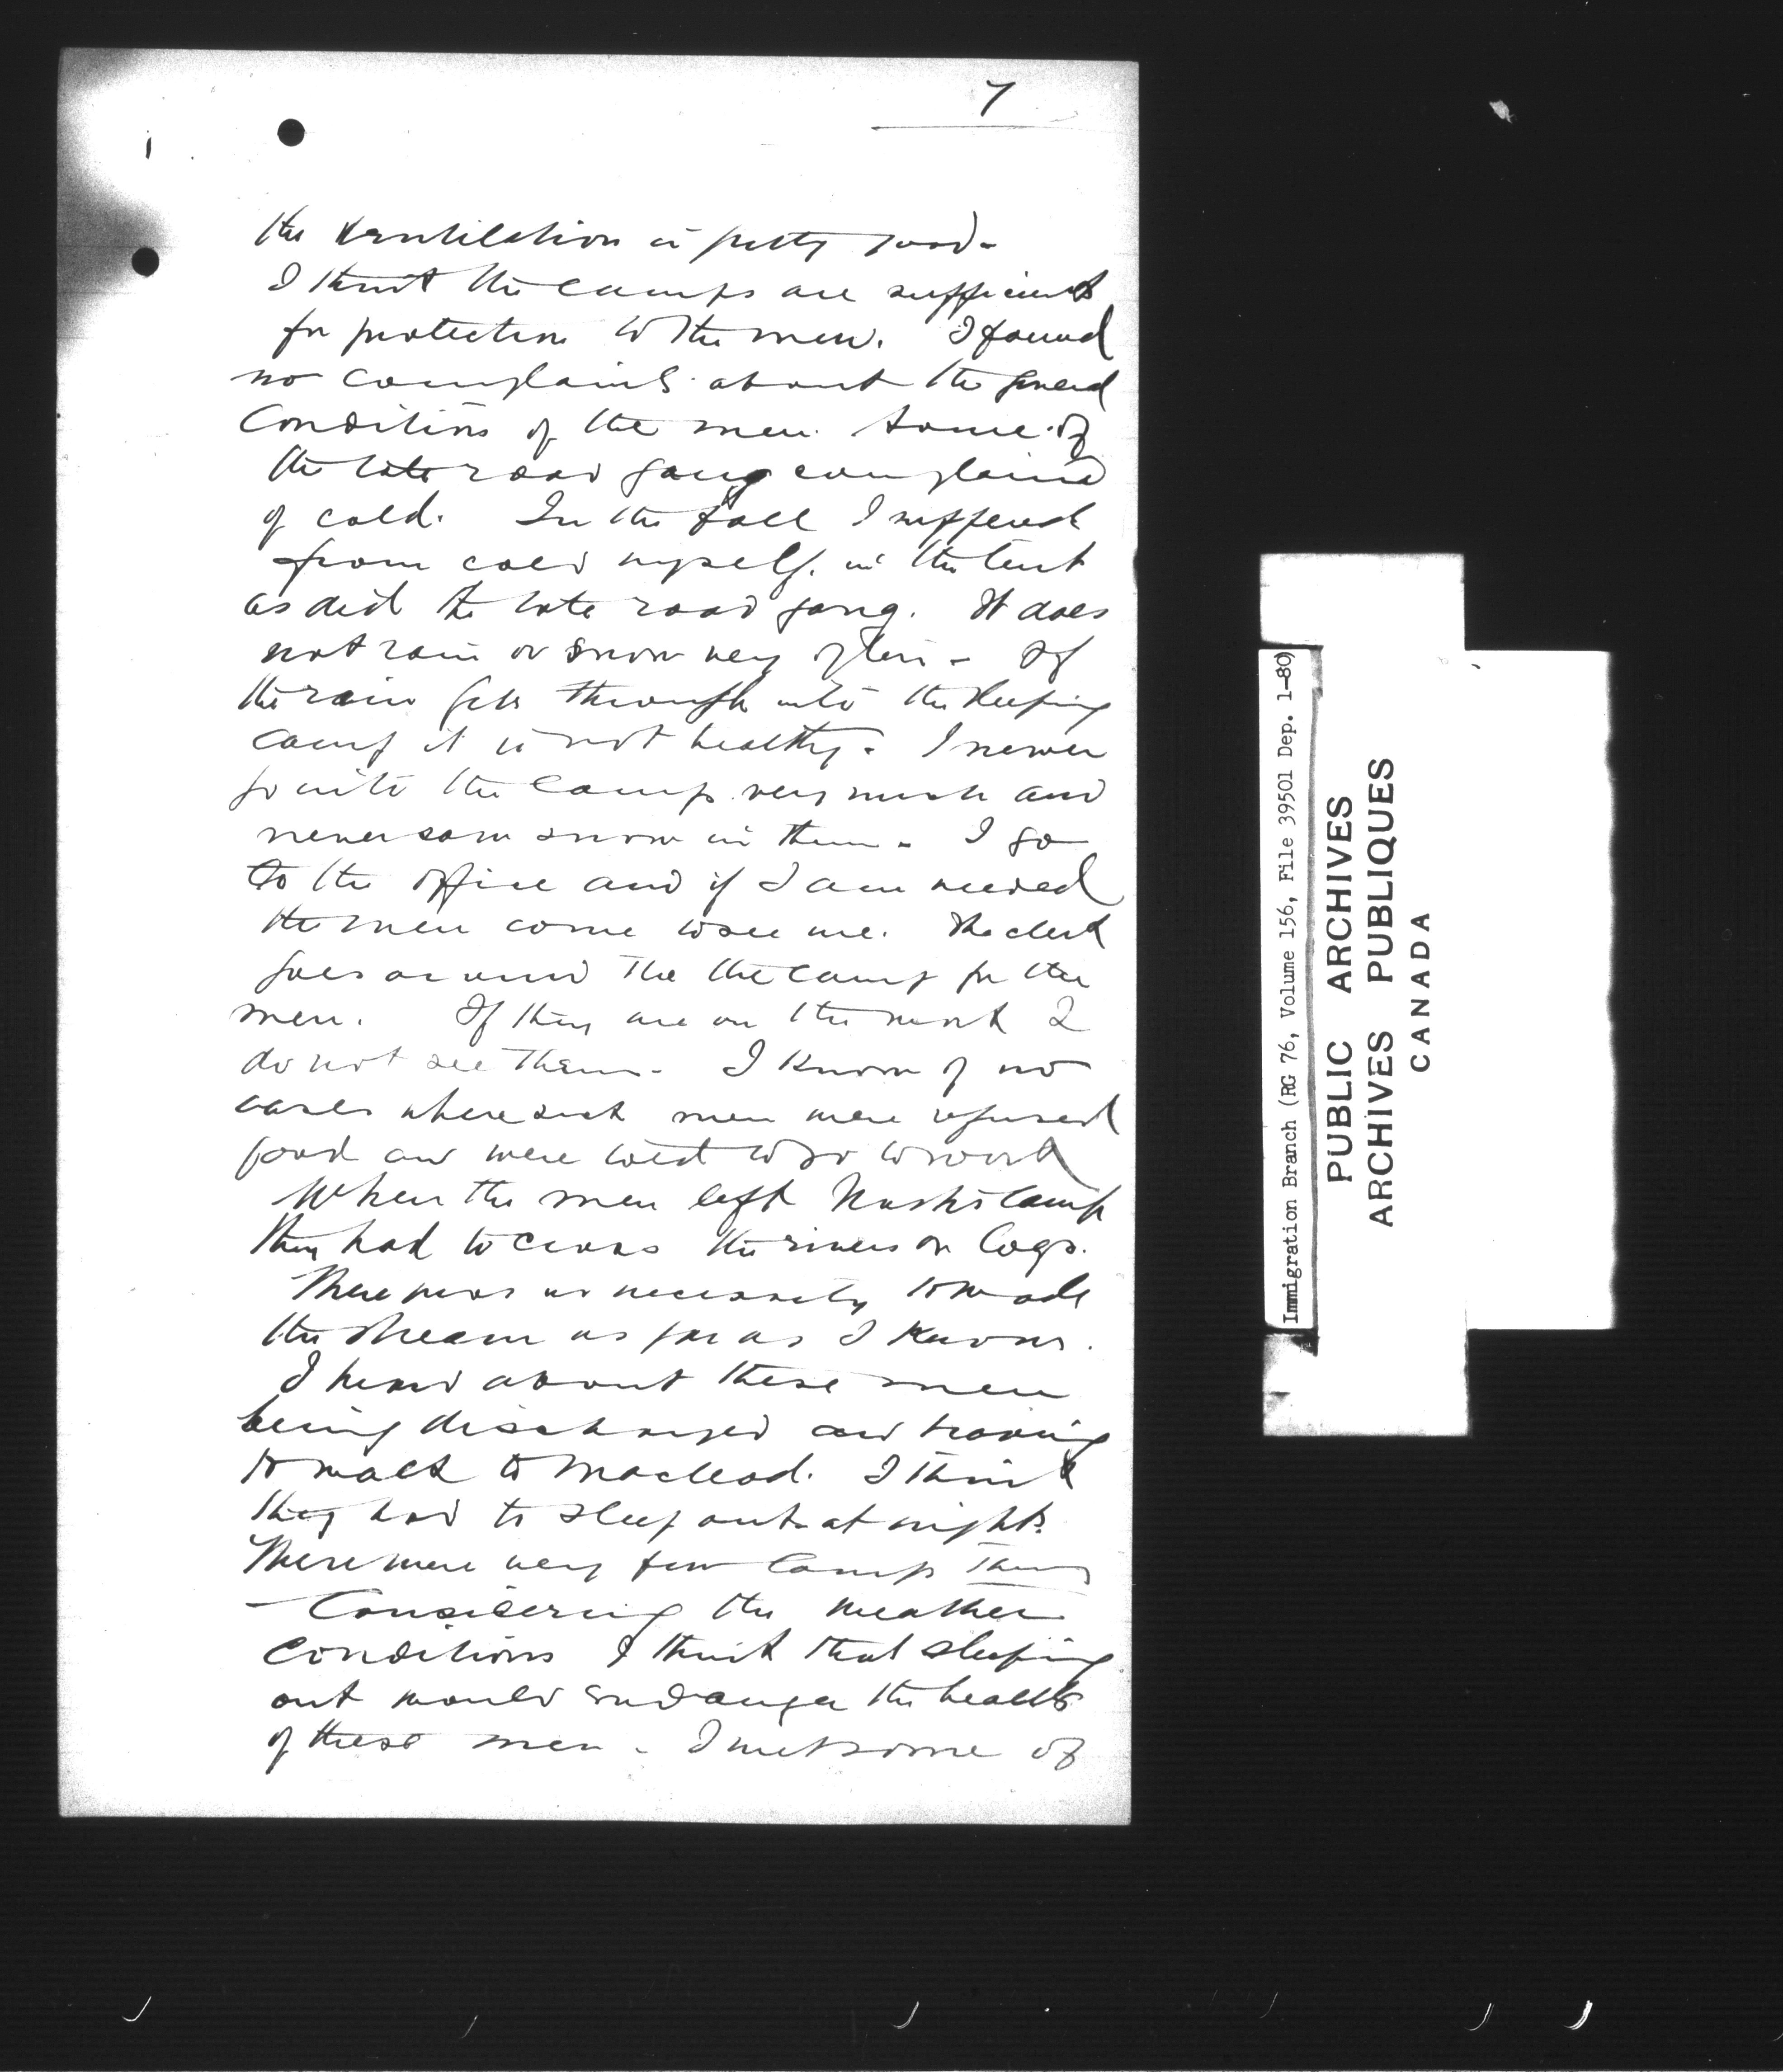 7
the ventilation is pretty good.
I think the camps are sufficient
for protection to the men. I found
no complaints about the general
conditions of the men. Some of
the tote road gang complained
of cold. In the fall I suffered
from cold myself. in the tent
as did the tote road gang. It does
not rain or snow very often - If
the rain gets through into the sleeping
camp it is not healthy. I never
go into the camps very much and
never saw snow in them. I go
to the office and if I am needed
the men come to see me. The clerk
goes around the the camp for the
men. If they are on the work I
do not see them. I know of no
cases where sick men were refused
food and were told to go to work
When the men left Nash's camp
they had to cross the rivers on logs.
There was no necessity to wade
the stream as far as I know.
I heard about these men
being discharged and having
to walk to Macleod. I think
they had to sleep out at nights.
There were very few camps then
- Considering the weather
conditions I think that sleeping
out would endanger the health
of these men - I met some of
Immigration Branch (RG 76, Volume 156, File 39501 Dep. 1-80)
PUBLIC ARCHIVES
ARCHIVES PUBLIQUES
CANADA